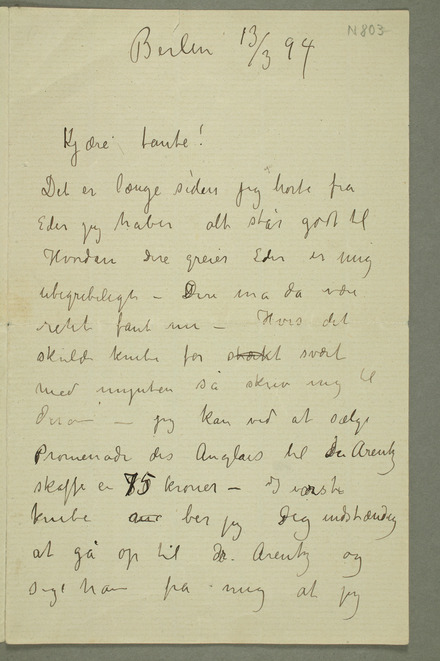 N 803
Berlin 13/3 94
Kjære tante!
Det er længe siden jeg hørte fra
Eder jeg haber alt står godt til
Hvordan dere greier Eder er mig
ubegribeligt – Dere må da være
rent fant nu – Hvis det
skulde knibe for strakt svært
med mynten så skriv mig til
– jeg kan ved at sælge
Promenade des Anglais til Dr Arentz
skaffe en 75 kroner – I værste
knibe ber jeg Deg indstændig
at gå op til dr. Arentz og
sige ham fra mig at jeg